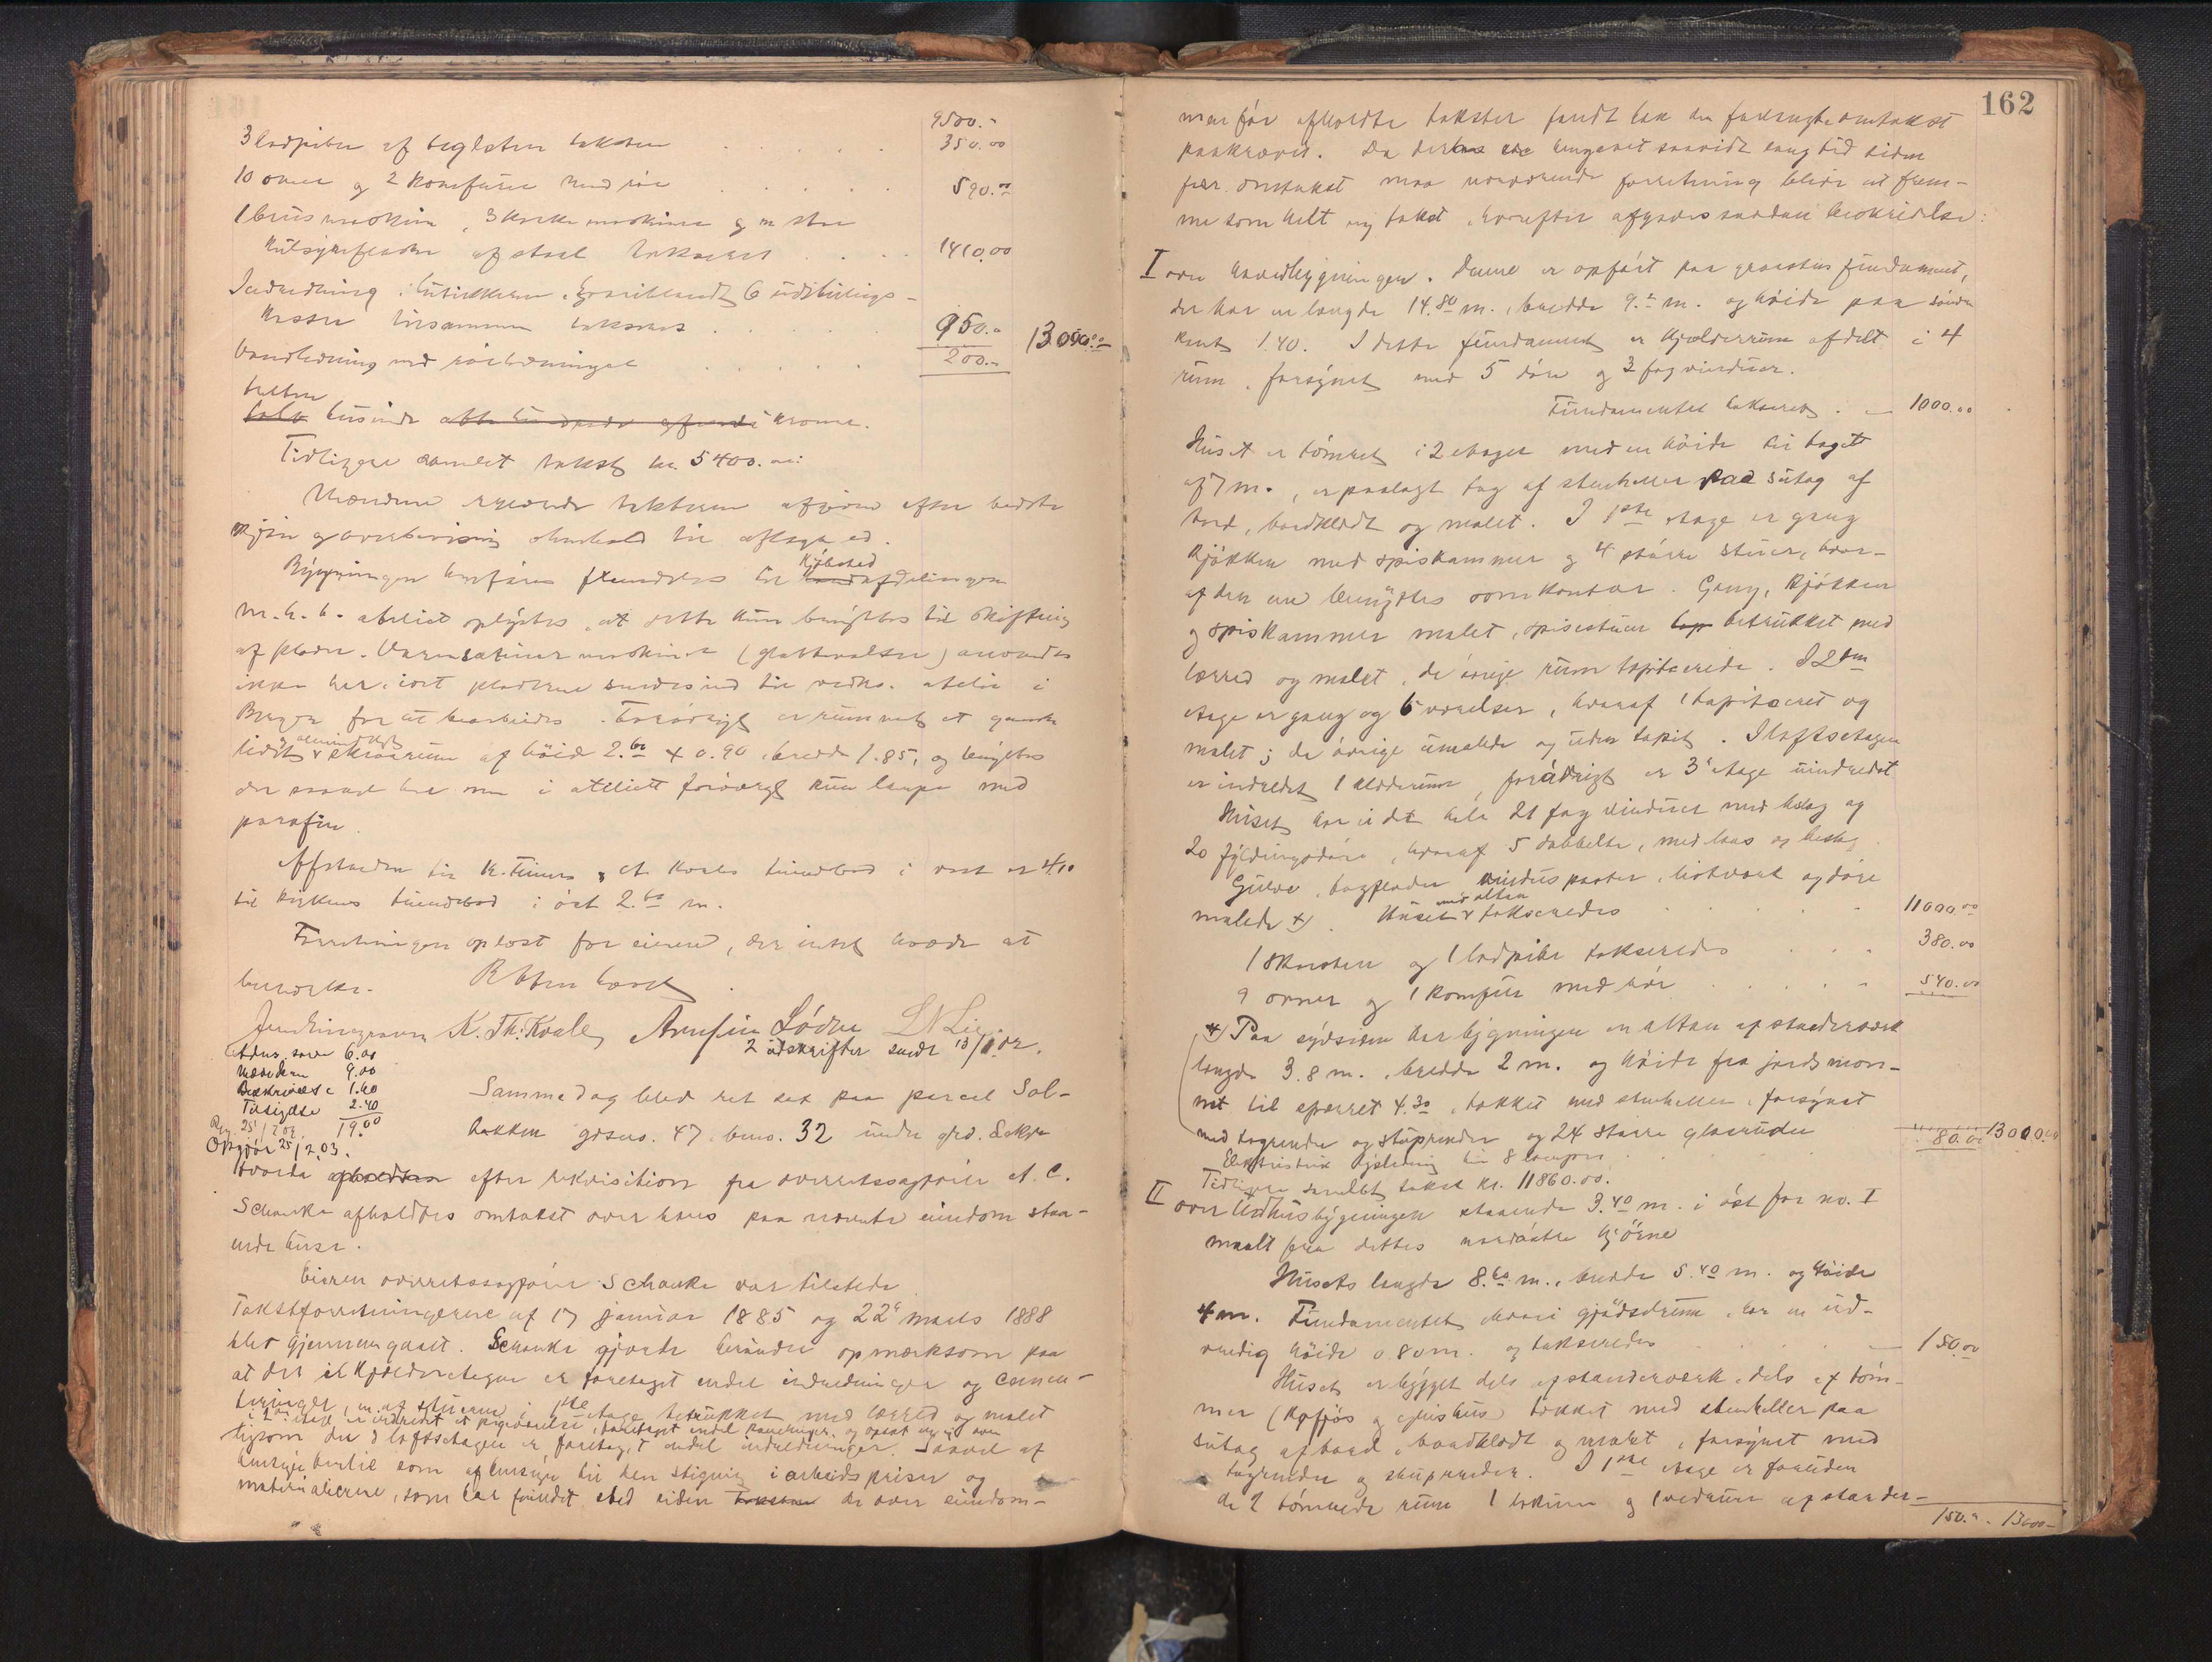 9500.-
3 ladpiber af teglsten taksten . . . . . 350.00
10 ovner og 2 komfurer med rør . . . . . 590.00
1 brusmaskin, 3 korkemaskiner og en stor
kulsyreflaske af staal takseret . . . . 1410.00
Indredning i butikkerne, iberiblandt 6 udstillings-
kasser tilsammen takseret . . . . . 950.00 13000.00
Vandledning med rørledninger . . . . . 200.-
tretten
tolv tusinde otte hundrede kroner.
Tidligere samlet takst kr. 5400.00
Mændene ergjærede taksterne afgivne efter bedste
skjøn og overbevisning i henhold til aflagt ed.
Bygningen henføres fremdeles til Kjøbsted afdelingen
m. h. t. atelieret oplystes, at dette kun benyttes til skiftning
af plader. Varmsatinermaskiner (glattevalser) anvendes
ikke her, idet pladerne sendes ind til vedk. atelier i
Bergen for at bearbeides. Forøvrigt er rummet et ganske
lidet og almindeligt skraarum af høide 2.60 + 0.90, bredde 1.85, og benyttes
der saavel her som i atelieret forøvrigt kun lampe med
parafin.
Afstanden til K. Finnes og A. Kvales huusebod i vest er 4.10
til kirkens huusebod i øst 2.60 m.
Forretningen oplæst for eieren, der intet havde at
bemerke.
K. Th. Kvale Arnfin Lödve L N Lie
2 udskrifter sendt 13/1 02.
6.00
Mændene 9.00
Beskrivelse 1.60
Tilsigelse 2.40
19.00
Opgjør 25/2.03.
Samme dag blev ret sat paa parcel Sol-
bakken gdsno. 47, brno. 32 under grd. Sekse
Hvorda efter rekvisition fra overretssagfører A. C.
Schanke afholdtes omtakst over hans paa nævnte eiendom staa-
ende huse.
Eieren overretssagfører Schanke var tilstede.
Takstforretningerne af 17 januar 1885 og 22de marts 1888
blev gjennemgaaet. Schanke gjorde herunder opmærksom paa
at der i kjelderetagen er foretaget endel indredninger og cemen-
teringer, en af stuerne i 1ste etage betrukket med lærred og malet
i 2den etage er indredet et pigeværelse, foretaget endel paneleringer og opsat ny ovn
ligesom der i loftsetagen er foretaget endel indredninger. Saavel af
hensyn hertil som af hensyn til den stigning i arbeidspriser og
materialierne, som har fundet sted siden de over eiendom-
162
men før afholdte takster fandt han den forlangte omtakst
paakrævet. Da der er hengaaet saavidt lang tid siden
før. omtakst maa nærværende forretning blive at frem-
me som helt ny takst, hvorefter afgaves saadan beskrivelse:
I over hovedbygningen. Denne er opført paa graastens fundament,
der har en længde 14.80 m., bredde 9.- m. og høide paa søndre
kant 1.40. I dette fundament er kjelderrum afdelt i 4
rum, forsynet med 5 døre og 3 fag vinduer.
Fundamentet takseret . — 1000.00
Huset er tømret i 2 etager med en høide til taget
af 7 m., er paalagt tag af stenheller paa sutag af
bord, bordklædt og malet. I 1ste etage er gang
kjøkken med spiskammer og 4 større stuer, hvor-
af den ene benyttes som kontor. Gang, kjøkken
og spiskammer malet, spisestuen betrukket med
lærred og malet, de øvrige rum tapiserede. I 2den
etage er gang og 6 værelser, hvoraf 1 tapiseret og
malet; de øvrige umalede og uden tapet. I loftsetagen
er indredet 1 klæderum, forøvrigt er 3de etage uindredet
Huset har i det hele 21 fag vinduer med beslag og
20 fyldingsdøre, hvoraf 5 dobbelte, med laas og beslag.
Gulve, tagplader, vinduspaster, listværk og døre
malede +). Huset med altan takseredes . . . 11000.00
1 skorsten og 1 ladpibe takseredes . . . 380.00
9 ovner og 1 komfur med rør . . . . . 540.00
+) Paa sydsiden har bygningen en altan af stenderværk
længde 3.8 m., bredde 2 m. og høide fra jordsmon-
net til sperret 4.30, tækket med stenheller, forsynet
med tagrender og stuprender og 24 større glasruder
Elektrisk lysledning til 8 lamper . . . 80.00 13000.00
Tidligere samlet takst kr. 11860.00.
II over Udhusbygningen staaende 3.40 m. i øst for no. I
maalt fra dettes nordøstre hjørne
Husets længde 8.60 m., bredde 5.40 m. og høide
4 m. Fundamentet hvori gjødselrum, har en ud-
vendig høide 0.80 m. og takseredes . . . . — 150.00
Huset er bygget dels af stenderværk, dels af tøm-
mer (kofjøs og grishus) tækket med stenheller paa
sutag af bord, bordklædt og malet, forsynet med
tagrender og stuprender. I 1ste etage er foruden
de 2 tømrede rum 1 lokum og 1 vedrum af stender-
150.- 13000-